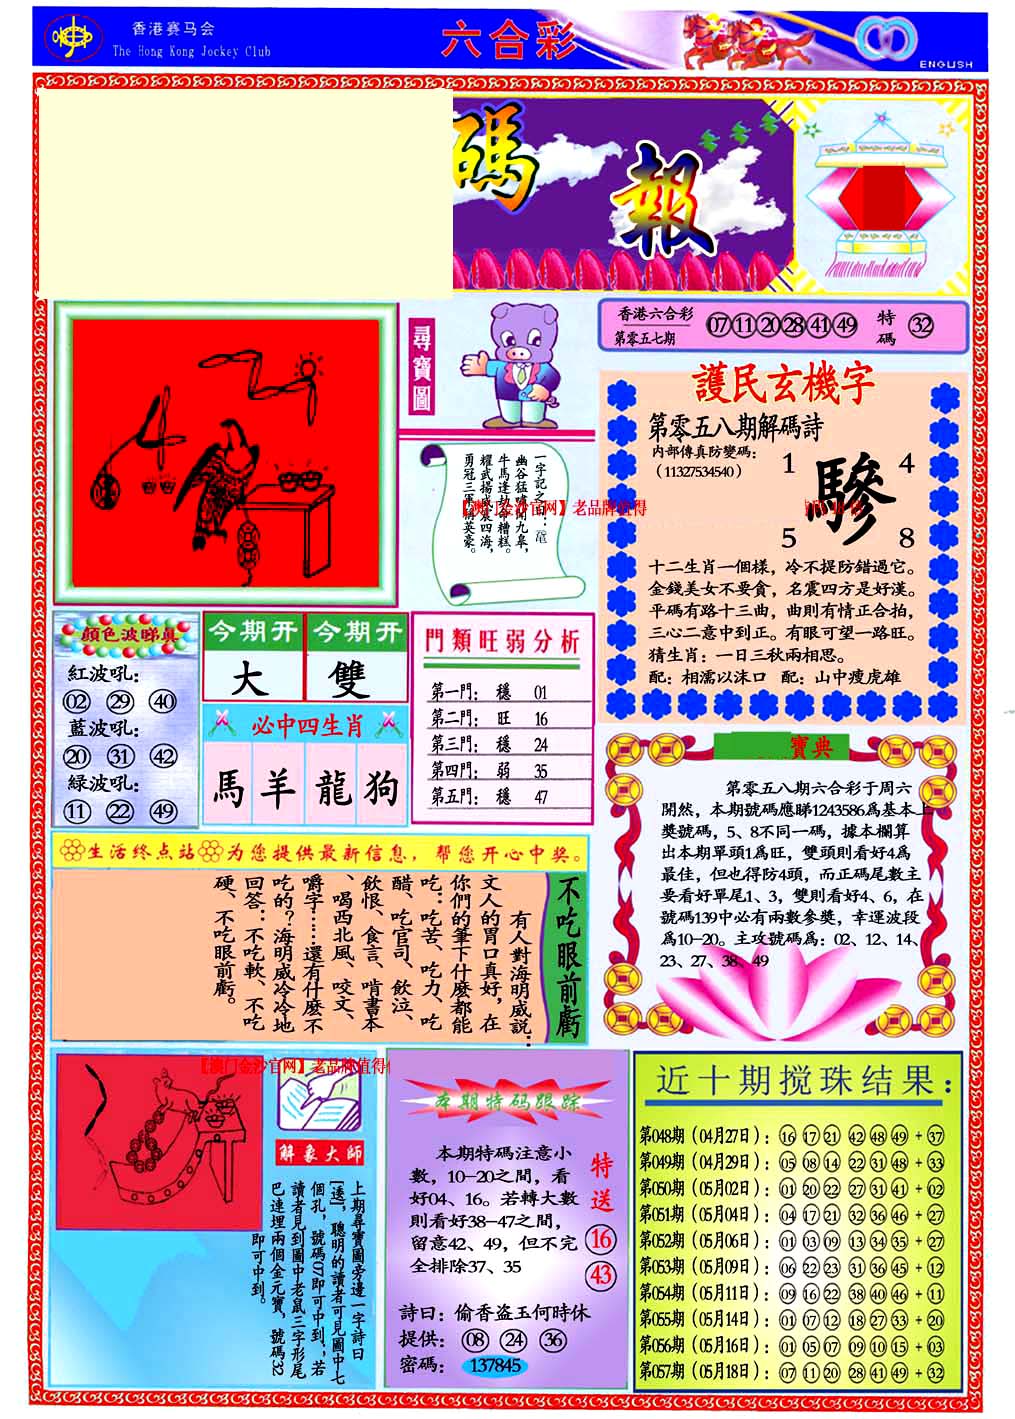 香港赛马会
The Hong Kong Jockey Club
六合彩
ENGLISH
碼報
香港六合彩
第零五七期
07 11 20 28 41 49
特碼
32
尋寶圖
一字記之曰：
幽谷猛噓聞九皋，
牛馬逢劫命糟糕。
耀武揚威震四海，
勇冠三軍稱英豪。
老品牌值得
護民玄機字
第零五八期解碼詩
内部傳真防變碼：
（11327534540）
1 4
驂
5 8
十二生肖一個樣，冷不提防錯過它。
金錢美女不要貪，名震四方是好漢。
平碼有路十三曲，曲則有情正合拍，
三心二意中到正。有眼可望一路旺。
猜生肖：一日三秋兩相思。
配：相濡以沫口 配：山中瘦虎雄
顔色波睇真
紅波吼：
02 29 40
藍波吼：
20 31 42
緑波吼：
11 22 49
今期开 今期开
大 雙
必中四生肖
馬 羊 龍 狗
門類旺弱分析
第一門： 穩 01
第二門： 旺 16
第三門： 穩 24
第四門： 弱 35
第五門： 穩 47
寶典
第零五八期六合彩于周六
開然，本期號碼應睇1243586爲基本上
獎號碼，5、8不同一碼，據本欄算
出本期單頭1爲旺，雙頭則看好4爲
最佳，但也得防4頭，而正碼尾數主
要看好單尾1、3，雙則看好4、6，在
號碼139中必有兩數參獎，幸運波段
爲10-20。主攻號碼爲：02、12、14、
23、27、38、49
生活终点站 为您提供最新信息，帮您开心中奖。
不吃眼前虧
有人對海明威説：
文人的胃口真好，在
你們的筆下什麽都能
吃：吃苦、吃力、吃
醋、吃官司、飲泣、
飲恨、食言、啃書本
、喝西北風、咬文、
嚼字……還有什麽不
吃的？海明威冷冷地
回答：不吃軟、不吃
硬、不吃眼前虧。
【澳门金沙官网】老品牌值得
解象大師
上期尋寶圖旁邊一字詩曰
[透]，聰明的讀者可見圖中七
個孔，號碼07即可中到，若
讀者見到圖中老鼠三字形尾
巴連埋兩個金元寶，號碼32
即可中到。
本期特码跟踪
本期特碼注意小
數，10-20之間，看
好04、16。若轉大數
則看好38-47之間，
留意42、49，但不完
全排除37、35
特送
16
43
詩曰：偷香盗玉何時休
提供： 08 24 36
密碼： 137845
近十期搅珠结果：
第048期（04月27日）：16 17 21 42 48 49 + 37
第049期（04月29日）：05 08 14 22 31 48 + 33
第050期（05月02日）：01 20 22 27 31 41 + 02
第051期（05月04日）：04 17 21 32 36 46 + 27
第052期（05月06日）：01 03 09 13 34 35 + 27
第053期（05月09日）：06 22 23 31 36 45 + 12
第054期（05月11日）：09 16 22 38 40 46 + 11
第055期（05月14日）：01 07 12 18 27 33 + 20
第056期（05月16日）：01 05 07 09 10 15 + 03
第057期（05月18日）：07 11 20 28 41 49 + 32